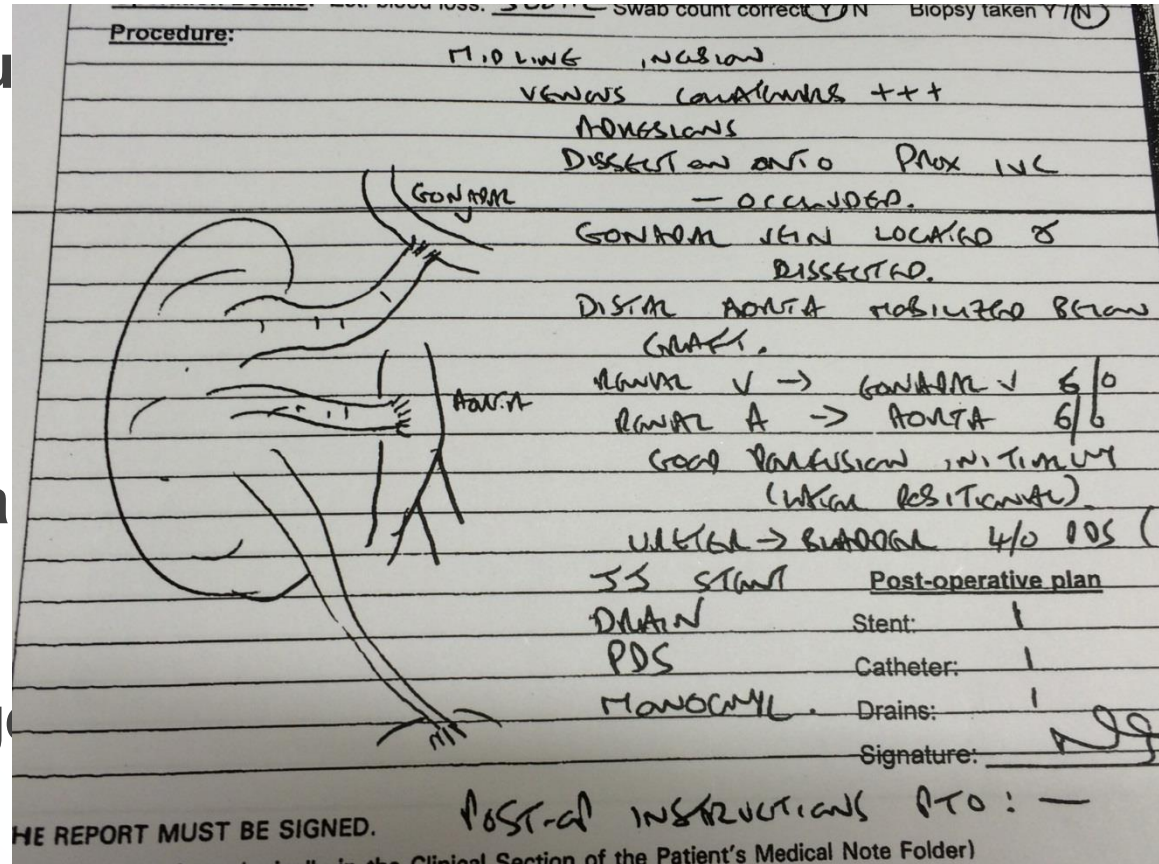 Est. blood loss: Swab count correct Y / N Biopsy taken Y / N
Procedure:
MIDLINE INCISION
VENOUS COLLATERALS +++
ADHESIONS
DISSECTION ONTO PROX IVC
— OCCLUDED.
GONADAL
GONADAL VEIN LOCATED &
DISSECTED.
DISTAL AORTA MOBILIZED BELOW
GRAFT.
AORTA
RENAL V → GONADAL V 6/0
RENAL A → AORTA 6/0
GOOD PERFUSION INITIALLY
(LATER POSITIONAL).
URETER → BLADDER 4/0 PDS (
JJ STENT
Post-operative plan
DRAIN
Stent: 1
PDS
Catheter: 1
MONOCRYL.
Drains: 1
Signature:
POST-OP INSTRUCTIONS PTO: —
HE REPORT MUST BE SIGNED.
in the Clinical Section of the Patient's Medical Note Folder)